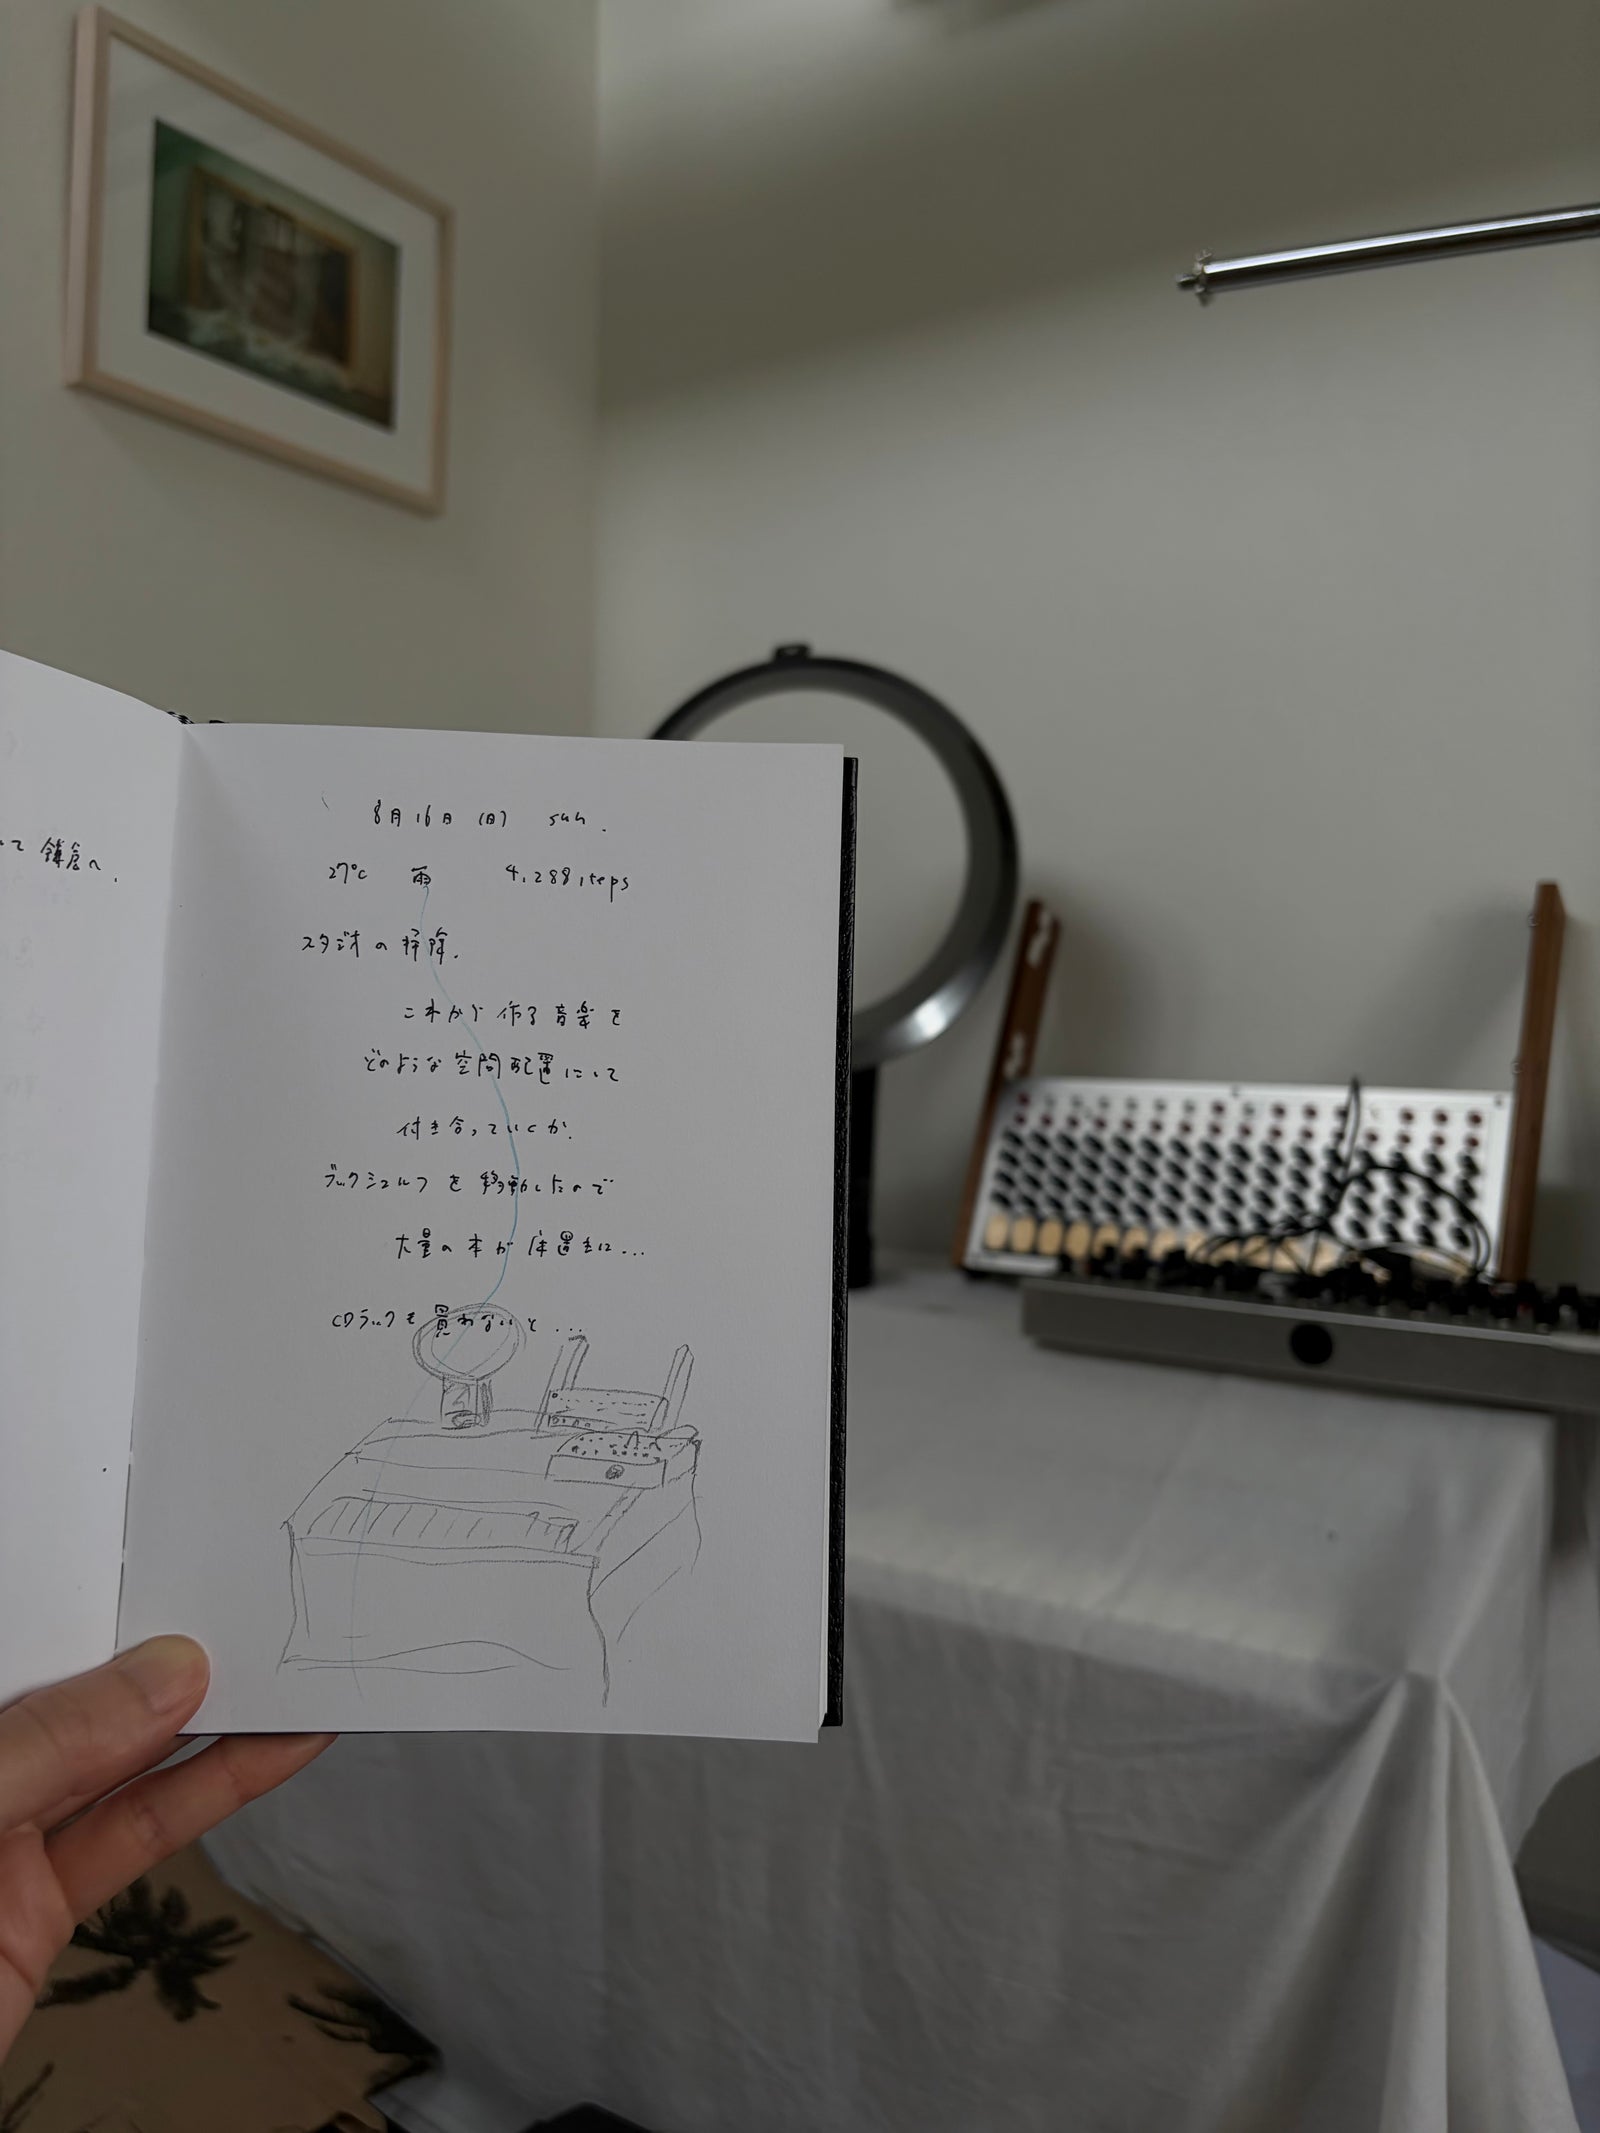 て 鎌倉へ.
8月16日 (日) sun.
27℃ 雨 4,288 steps
スタジオの掃除.
これから作る音楽を
どのような空間配置にして
付き合っていくか.
ブックシェルフを移動したので
大量の本が床置きに...
CDラックを買わないと...